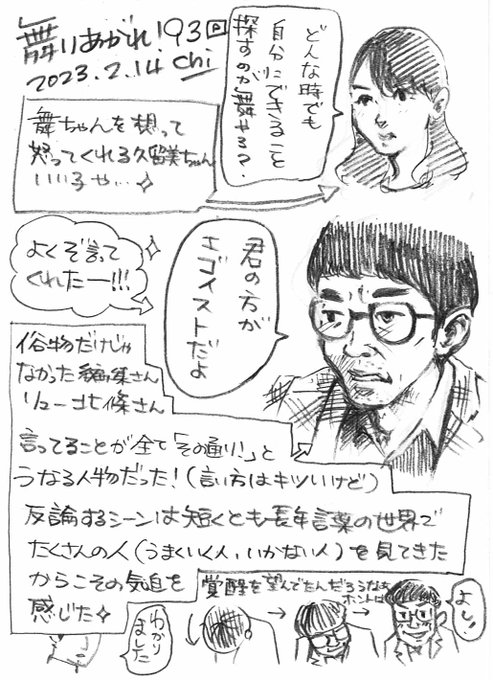 舞いあがれ!93回
2023.2.14 chi
どんな時でも
自分にできること
探すのが舞やろ?
舞ちゃんを想って
怒ってくれる久留美ちゃん
いい子や…
よくぞ言って
くれたー!!!
君の方が
エゴイストだよ
俗物だけじゃ
なかった編集さん
リュー北條さん
言ってることが全て「その通り!」と
うなる人物だった!(言い方はキツいけど)
反論するシーンは短くとも長年言葉の世界で
たくさんの人(うまくいく人、いかない人)を見てきた
からこその気迫を
感じた
覚醒を望んでたんだろうなあ
ホントは
わかり
ました
よし!